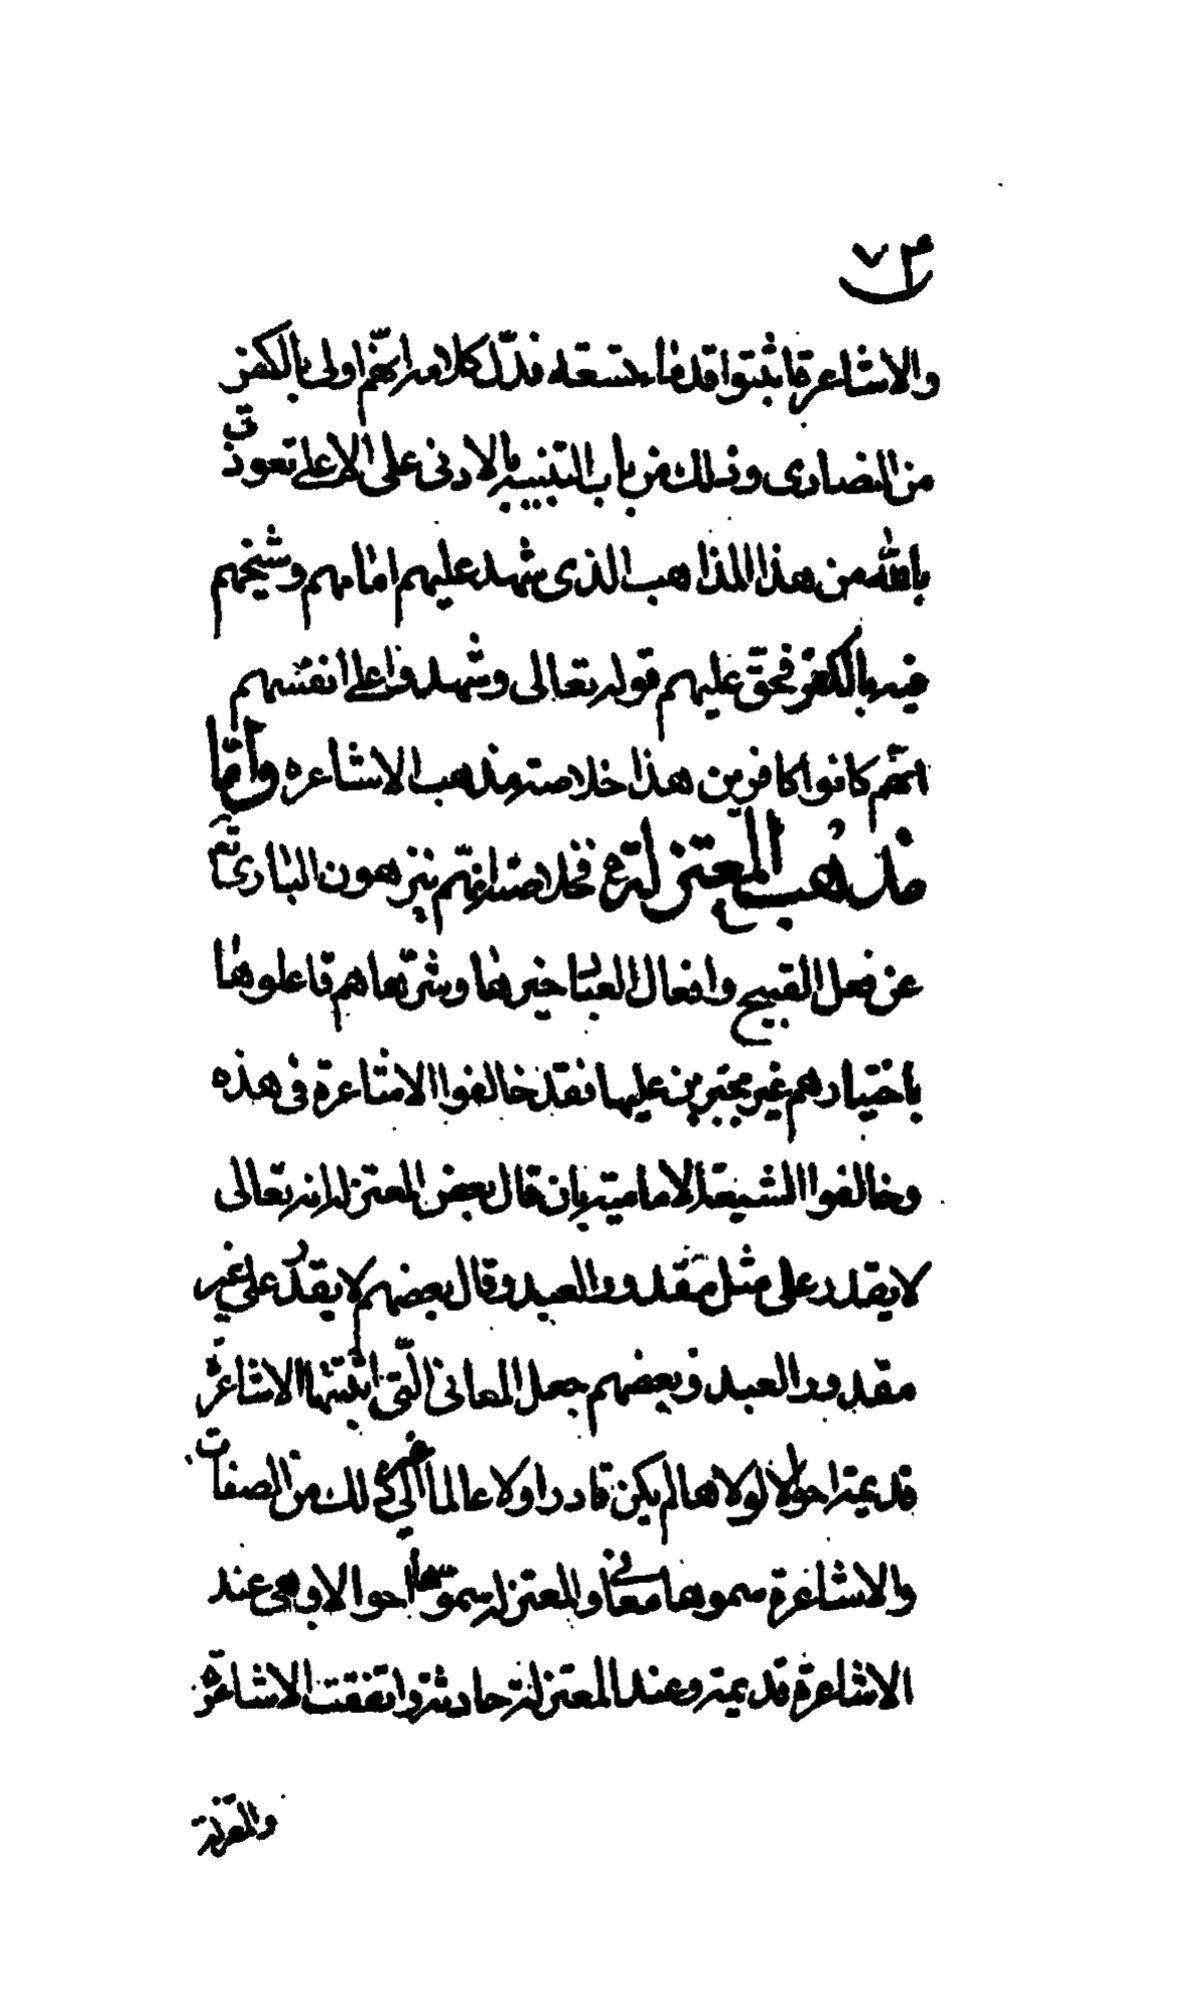 ٧٣
والاشاعرة اثبتوا قدماء تسعة فدل كلامه انهم اولى بالكفر
من النصارى وذلك من باب التنبيه بالادنى على الاعلى نعوذ
بالله من هذا المذاهب الذى شهد عليهم امامهم وشيخهم
فيه بالكفر فحق عليهم قوله تعالى وشهدوا على انفسهم
انهم كانوا كافرين هذا خلاصة مذهب الاشاعرة وامّا
مذهب المعتزلة فخلاصته انهم ينزهون البارى تع
عن فعل القبيح وافعال العباد خيرها وشرها هم فاعلوها
باختيارهم غير مجبرين عليها فقد خالفوا الاشاعرة فى هذه
وخالفوا الشيعة الامامية بان قال بعض المعتزلة انه تعالى
لا يقدر على مثل مقدور العبد وقال بعضهم لا يقدر على غير
مقدور العبد وبعضهم جعل المعانى الّتى اثبتها الاشاعرة
قديمة احوالا لولاها لم يكن قادرا ولا عالما الى غير ذلك من الصفات
والاشاعرة سموها معانى والمعتزلة سمّوها احوالا وهى عند
الاشاعرة قديمة وعند المعتزلة حادثة واتفقت الاشاعرة
والمعتزلة